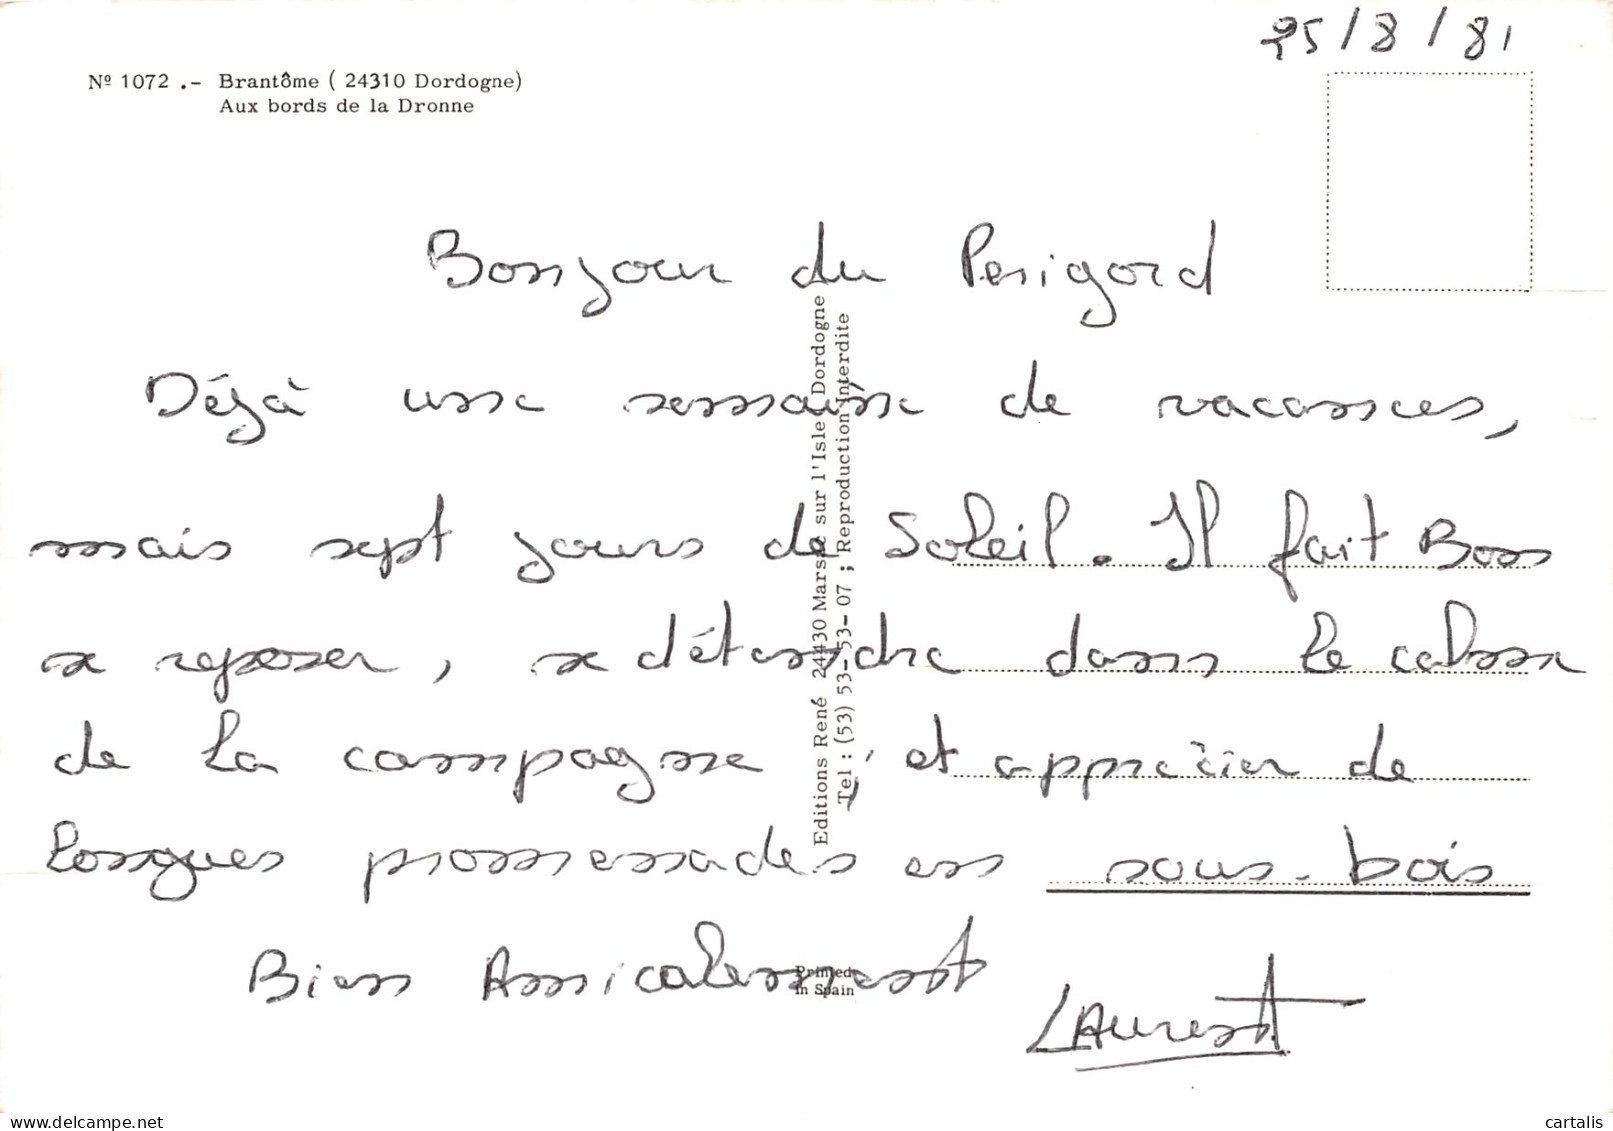 25/8/81
Nº 1072 .- Brantôme ( 24310 Dordogne)
Aux bords de la Dronne
Bonjour du Perigord
Déjà une semaine de vacances,
mais sept jours de Soleil. Il fait Bon
se reposer, se détendre dans le calme
de la campagne, et apprécier de
longues promenades en sous-bois
Bien Amicalement
Laurent
Editions René 24430 Marsac sur l'Isle Dordogne
Tel : (53) 53-53-53-07 ; Reproduction interdite
Printed
in Spain
delcampe.net
cartalis